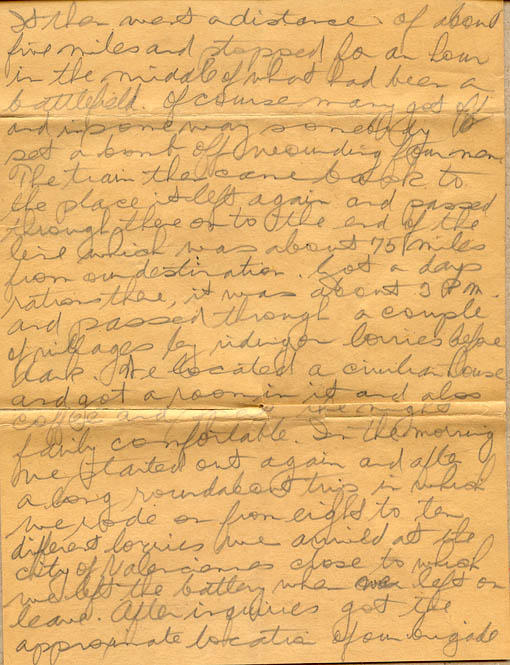 It then went a distance of about
five miles and stopped for an hour
in the middle of what had been a
battlefield. Of course many got off
and in some way somebody
set a bomb off wounding four men.
The train then came back to
the place it left again and passed
through there on to the end of the
line which was about 75 miles
from our destination. Got a days
rations there, it was about 3 P.M.
and passed through a couple
of villages by riding on lorries before
dark. We located a civilian house
and got a room in it and also
coffee and the night
fairly comfortable. In the morning
we started out again and after
a long roundabout trip in which
we rode on from eight to ten
different lorries we arrived at the
city of Valenciennes close to which
we left the battery when we left on
leave. After inquiries got the
approximate location of our brigade